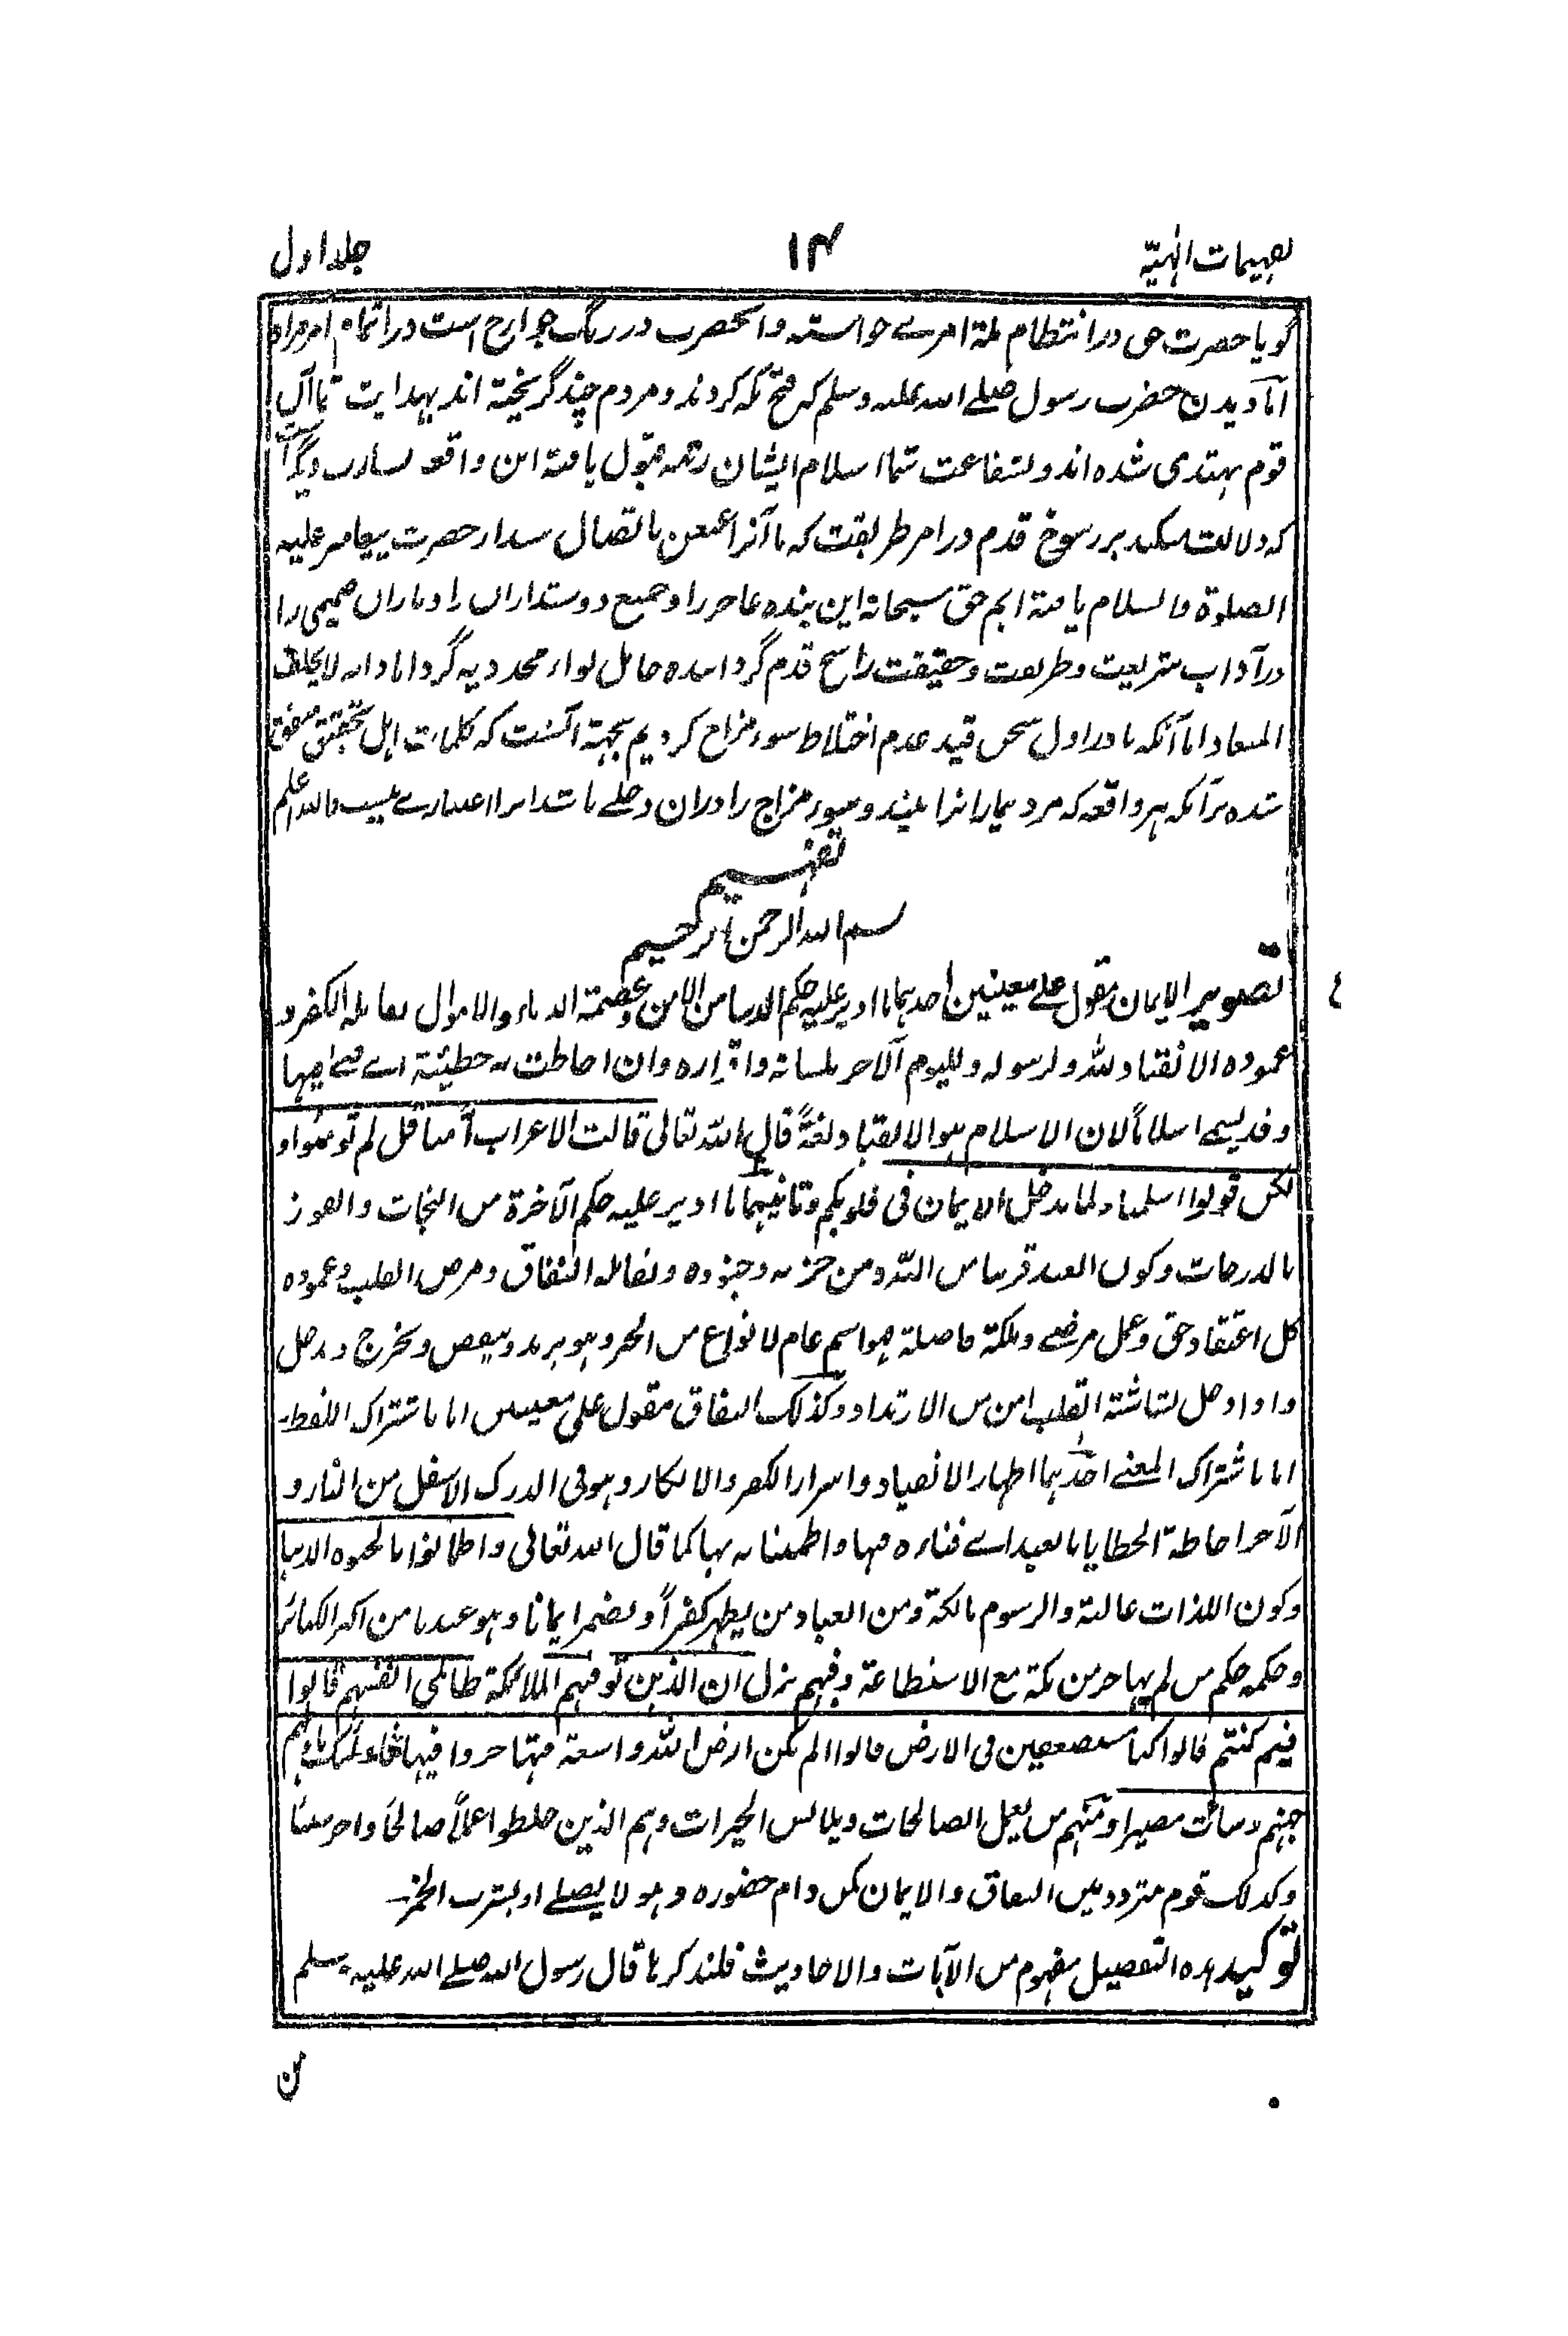 تفہیمات الٰہیہ ۱۴ جلد اول
گویا حضرت حق در انتظام ملۃ امرے خواستہ و آنحضرت در رنگ جوارح است در اتمام امر مراد
اما دیدن حضرت رسول صلے اللہ علیہ وسلم کہ فتح مکہ کردند و مردم چند گریختہ اند بہدایت شما آں
قوم مہتدی شدہ اند و بشفاعت شما اسلام ایشان رتبہ قبول یافتہ این واقعہ بشارت دیگر است
کہ دلالت میکند بر رسوخ قدم در امر طریقت کہ ما آنرا باتصال حضرت پیغامبر علیہ
الصلوۃ والسلام یافتہ ایم حق سبحانہ این بندہ عاجز را و جمیع دوستداراں را و یاراں صمیمی را
در آداب شریعت و طریقت و حقیقت راسخ قدم گردانیدہ حامل لواء محمدیہ گرداناد انہ لا یخلف
المیعاد اما آنکہ ما در اول سخن قید عدم اختلاط سوء مزاج کردیم بجہتہ آنست کہ کلمات اہل تحقیق متفق
شدہ برآنکہ ہر واقعہ کہ مرد بیمار انرا بیند و سوء مزاج را دران دخلے باشد انرا اعتبارے نیست واللہ اعلم
تفہیم
بسم اللہ الرحمن الرحیم
تصویر الایمان مقول علے معنیین احدہما ما ادیر علیہ حکم الدنیا من الامن و عصمۃ الدماء والاموال یقابلہ الکفر و
عمودہ الانقیاد للہ ولرسولہ وللیوم الآخر بلسانہ واقرارہ وان احاطت بہ خطیئتہ
وقد یسمے اسلاماً لان الاسلام ہو الانقیاد لغۃً قال اللہ تعالی قالت الاعراب آمنا قل لم تومنوا و
لکن قولوا اسلمنا ولما یدخل الایمان فی قلوبکم وثانیہما ما ادیر علیہ حکم الآخرۃ من النجات والفوز
بالدرجات وکون العبد قریبا من اللہ ومن حزبہ وجنودہ ویقابلہ النفاق ومرض القلب وعمودہ
کل اعتقاد حق وعمل مرضے وملکۃ فاضلۃ ہو اسم عام لانواع من الخیر وہو یزید وینقص ویخرج ویدخل
واذا دخل بشاشتہ القلب امن من الارتداد وکذلک النفاق مقول علی معنیین اما باشتراک اللفظ
اما باشتراک المعنے احدہما اظہار الانقیاد واسرار الکفر والانکار وہو فی الدرک الاسفل من النار و
الآخر احاطۃ الخطایا بالعبد واطمینانہ بہا کما قال اللہ تعالی واطمانوا بالحیوۃ الدنیا
وکون اللذات غالبۃ والرسوم مالکۃ ومن العباد من یظہر کفراً ویضمر ایمانا وہو عندنا من اکبر الکبائر
وحکمہ حکم من لم یہاجر من مکۃ مع الاستطاعۃ وفیہم نزل ان الذین توفیہم الملائکۃ ظالمی انفسہم قالوا
فیم کنتم قالوا کنا مستضعفین فی الارض قالوا الم تکن ارض اللہ واسعۃ فتہاجروا فیہا فاولئک ماوٰہم
جہنم وسائت مصیرا ومنہم من یعمل الصالحات ویلابس الخیرات وہم الذین خلطوا عملاً صالحاً واخر سیئا
وکذلک قوم متردد بین النفاق والایمان دام حضورہ وہو لا یصلے او یشرب الخمر۔
توکید ہذہ التفصیل مفہوم من الآیات والاحادیث فلنذکر ما قال رسول اللہ صلے اللہ علیہ وسلم
من